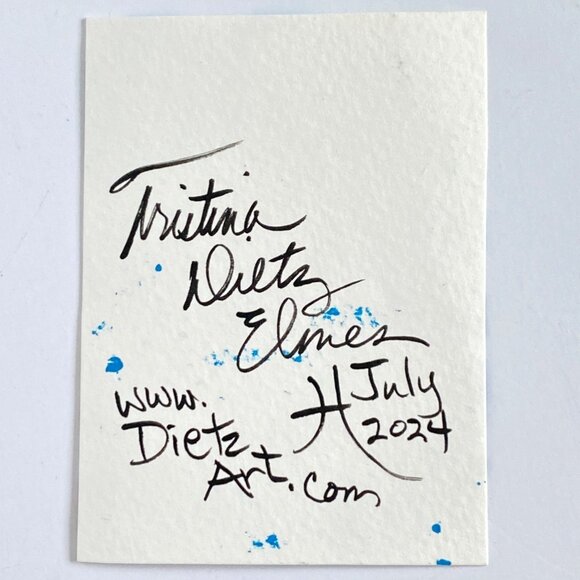 Tristina
Dietz
Elmes
www.
Dietz
Art.com
July
2024